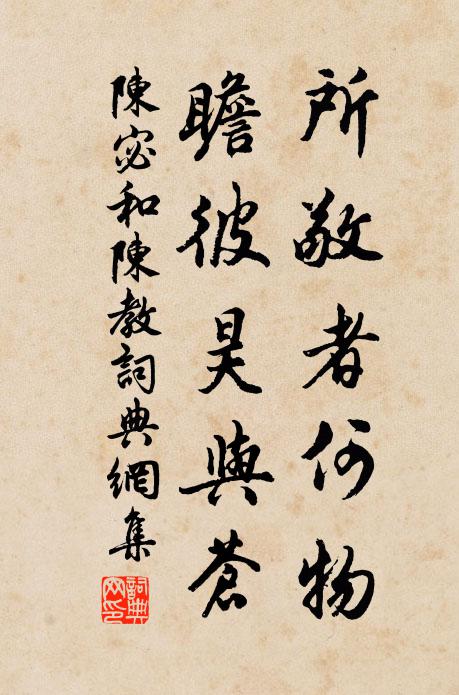 所敬者何物
瞻彼昊與蒼
陳宓和陳教詞典網集
詞典
网印